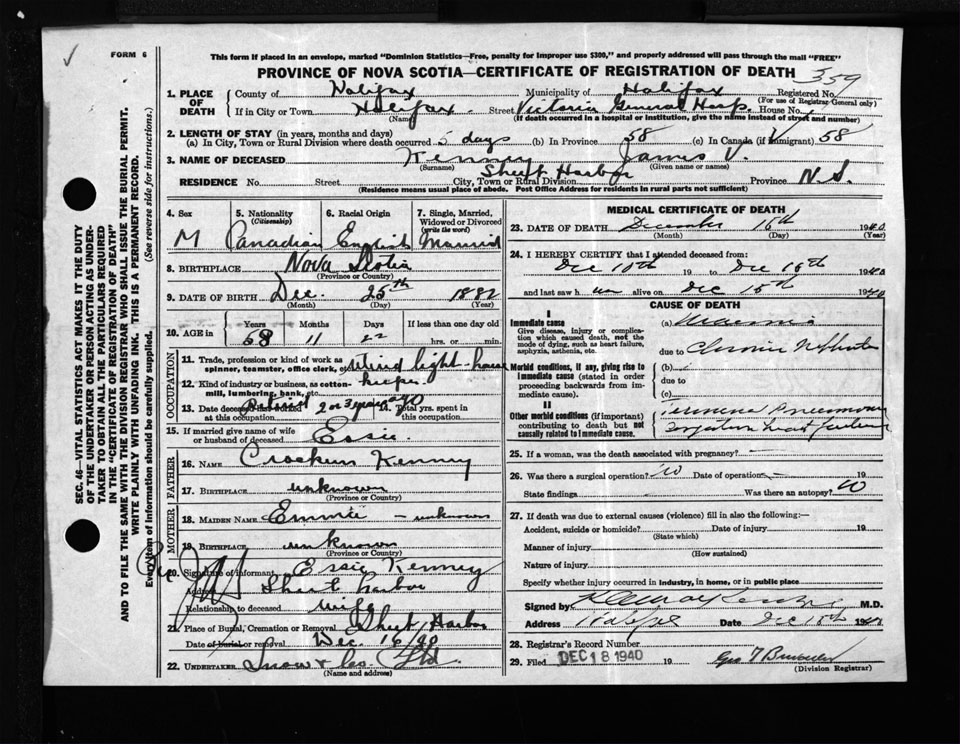 ✓
FORM 6
This form if placed in an envelope, marked "Dominion Statistics—Free, penalty for improper use $300," and properly addressed will pass through the mail "FREE"
PROVINCE OF NOVA SCOTIA—CERTIFICATE OF REGISTRATION OF DEATH
359
1. PLACE OF DEATH
County of Halifax Municipality of Halifax Registered No.
(For use of Registrar General only)
If in City or Town Halifax Street Victoria General Hosp. House No.
(Name) (If death occurred in a hospital or institution, give the name instead of street and number)
2. LENGTH OF STAY (in years, months and days)
(a) In City, Town or Rural Division where death occurred 5 days (b) In Province 58 (c) In Canada (if immigrant) 58
3. NAME OF DECEASED Kenney James V.
(Surname) (Given name or names)
RESIDENCE No. Street City, Town or Rural Division Sheet Harbor Province N.S.
(Residence means usual place of abode. Post Office Address for residents in rural parts not sufficient)
4. Sex M
5. Nationality (Citizenship) Canadian
6. Racial Origin English
7. Single, Married, Widowed or Divorced (write the word) Married
8. BIRTHPLACE Nova Scotia
(Province or Country)
9. DATE OF BIRTH Dec. 25th 1882
(Month) (Day) (Year)
10. AGE in Years 58 Months 11 Days 22 If less than one day old
hrs. or min.
OCCUPATION
11. Trade, profession or kind of work as spinner, teamster, office clerk, etc. retired light-house
12. Kind of industry or business, as cotton-mill, lumbering, bank, etc. keeper
13. Date deceased last worked at this occupation Retired 2 or 3 years ago 14. Total yrs. spent in this occupation
15. If married give name of wife or husband of deceased Essie.
FATHER
16. NAME Kenney
17. BIRTHPLACE unknown
(Province or Country)
MOTHER
18. MAIDEN NAME Emmie - unknown
19. BIRTHPLACE unknown
(Province or Country)
20. Signature of informant Essie Kenney
Address Sheet Harbor
Relationship to deceased wife
21. Place of Burial, Cremation or Removal Sheet Harbor
Date of burial or removal Dec. 16/40
22. UNDERTAKER Snow & Co. Ltd.
(Name and address)
MEDICAL CERTIFICATE OF DEATH
23. DATE OF DEATH December 16th 1940
(Month) (Day) (Year)
24. I HEREBY CERTIFY that I attended deceased from:
Dec 10th 19 to Dec 15th 1940
and last saw h im alive on Dec 15th 1940
CAUSE OF DEATH
I
Immediate cause
Give disease, injury or complication which caused death, not the mode of dying, such as heart failure, asphyxia, asthenia, etc.
(a) Uraemia
due to Chronic Nephritis
Morbid conditions, if any, giving rise to immediate cause (stated in order proceeding backwards from immediate cause).
(b)
due to
(c)
II
Other morbid conditions (if important) contributing to death but not causally related to immediate cause.
Terminal Pneumonia
Congestive heart failure
25. If a woman, was the death associated with pregnancy? —
26. Was there a surgical operation? No Date of operation 19
State findings Was there an autopsy? No
27. If death was due to external causes (violence) fill in also the following:—
Accident, suicide or homicide? Date of injury 19
(State which)
Manner of injury
(How sustained)
Nature of injury
Specify whether injury occurred in industry, in home, or in public place
Signed by M.D.
Address Halifax Date Dec 15th 1940
28. Registrar's Record Number
29. Filed DEC 18 1940 19
(Division Registrar)
SEC. 46—VITAL STATISTICS ACT MAKES IT THE DUTY
OF THE UNDERTAKER OR PERSON ACTING AS UNDER-
TAKER TO OBTAIN ALL THE PARTICULARS REQUIRED
IN THE "CERTIFICATE OF REGISTRATION OF DEATH"
AND TO FILE THE SAME WITH THE DIVISION REGISTRAR WHO SHALL ISSUE THE BURIAL PERMIT.
WRITE PLAINLY WITH UNFADING INK. THIS IS A PERMANENT RECORD.
Every item of information should be carefully supplied. (See reverse side for instructions.)